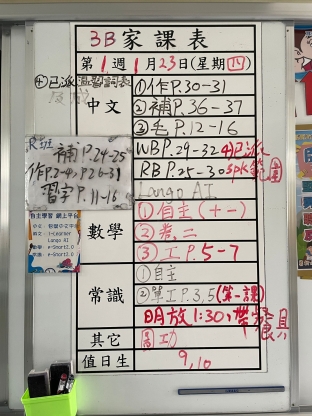 3B家課表
第1週1月23日(星期四)
④已派溫習詞表
中文
①作P.30-31
②補P.36-37
③毛P.12-16
R班
補P.24-25
作P.2-4, P.26-31
習字P.11-16
WB P.29-32 ④已派
RB P.25-30
Lango AI
自主學習 網上平台
數學
①自主(+-)
②卷,二
③工P.5-7
常識
①自主
②單工P.3,5(第一課)
明放1:30,帶餐具
其它
周功
值日生
9,10